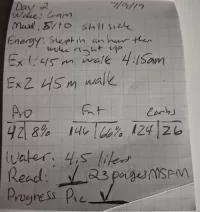 Day 2 4/9/19
Woke: 6am
Mood: 5/10 still sick
Energy: Slept in an hour then woke right up
Ex 1: 45 m walk 4:15am
Ex 2 45 m walk
Pro Fat Carbs
42 | 8% 146 | 66% 124 | 26
Water: 4.5 liters
Read: ✓ 23 pages MSFM
Progress Pic ✓